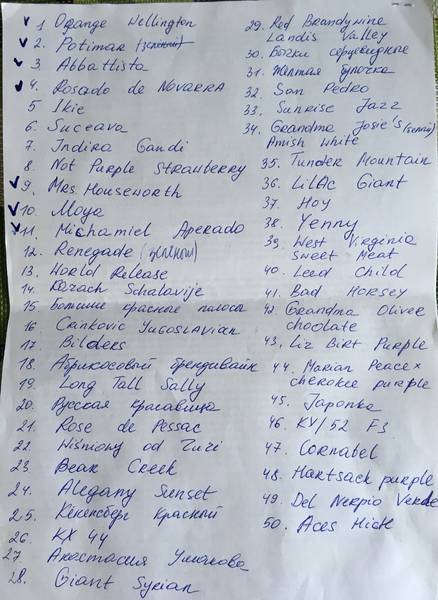 ✓ 1. Orange Wellington
✓ 2. Potimar (зелений)
✓ 3. Abbatlista
✓ 4. Rosado de Novarra
5 Ikie
6. Suceava
7. Indira Gandi
8 Not Purple Strawberry
✓ 9. Mrs Houseworth
✓ 10. Moya
✓ 11. Michamiel Aperado
12. Renegade (зелений)
13. World Release
14. Kozach Schalavije
15. Большие красные полоса
16 Crnkovic Yugoslavian
17 Bilders
18. Абрикосовый брендивайн
19. Long Tall Sally
20. Русская красавица
21. Rose de Pessac
22. Wisniowy od Zuzi
23 Bear Creek
24. Alegany Sunset
25. Кенигсберг Красный
26. KX 44
27. Анастасия
28. Giant Syrian
29. Red Brandywine
Landis Valley
30. Бочки серцевидные
31. Желтая булочка
32. San Pedro
33. Sunrise Jazz
34. Grandma Josie's
Amish White
35. Tunder Mountain
36. Lilac Giant
37. Hoy
38. Yenny
39. West Virginia
Sweet Meat
40. Lead Child
41. Bad Horsey
42. Grandma Oliver
choolate
43. Liz Birt Purple
44. Marian Peace x
cherokee purple
45. Japonka
46. KY/52 F3
47. Cornabel
48. Hartsack purple
49. Del Nerpio Verde
50. Aces High